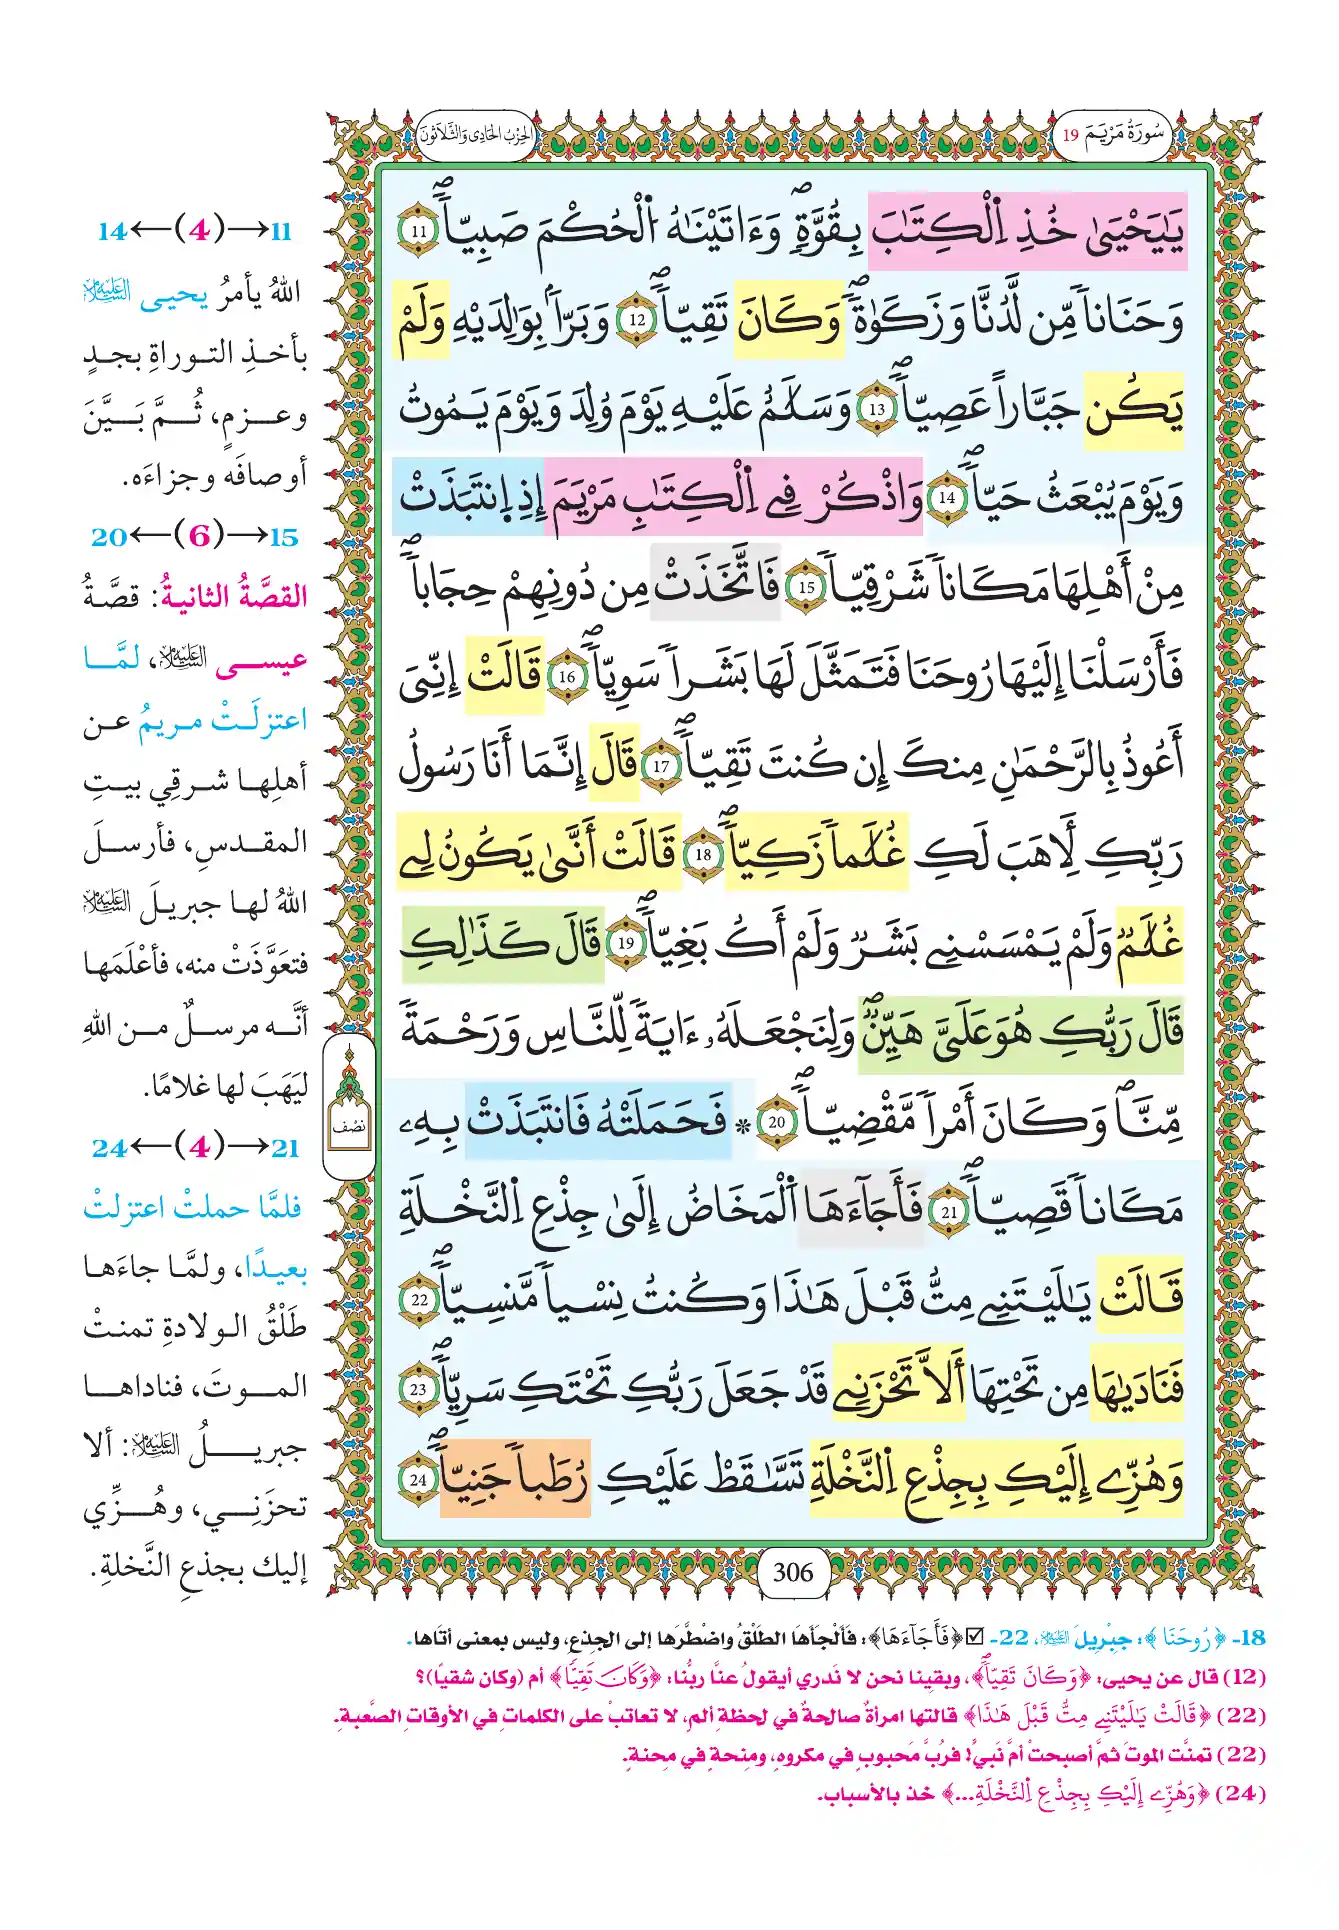 سُورَةُ مَرْيَمَ 19
الحِزْبُ الحَادِي وَالثَّلَاثُونَ
يَٰيَحْيَىٰ خُذِ اِ۬لْكِتَٰبَ بِقُوَّةٖۖ وَءَاتَيْنَٰهُ اُ۬لْحُكْمَ صَبِيّاٗۖ 11
وَحَنَاناٗ مِّن لَّدُنَّا وَزَكَوٰةٗۖ وَكَانَ تَقِيّاٗۖ 12 وَبَرّاَۢ بِوَٰلِدَيْهِ وَلَمْ
يَكُن جَبَّاراً عَصِيّاٗۖ 13 وَسَلَٰمٌ عَلَيْهِ يَوْمَ وُلِدَ وَيَوْمَ يَمُوتُ
وَيَوْمَ يُبْعَثُ حَيّاٗۖ 14 وَاذْكُرْ فِے اِ۬لْكِتَٰبِ مَرْيَمَ إِذِ اِ۪نتَبَذَتْ
مِنْ أَهْلِهَا مَكَاناٗ شَرْقِيّاٗۖ 15 فَاتَّخَذَتْ مِن دُونِهِمْ حِجَاباٗۖ
فَأَرْسَلْنَا إِلَيْهَا رُوحَنَا فَتَمَثَّلَ لَهَا بَشَراٗ سَوِيّاٗۖ 16 قَالَتْ إِنِّيَ
أَعُوذُ بِالرَّحْمَٰنِ مِنكَ إِن كُنتَ تَقِيّاٗۖ 17 قَالَ إِنَّمَا أَنَا رَسُولُ
رَبِّكِ لِأَهَبَ لَكِ غُلَٰماٗ زَكِيّاٗۖ 18 قَالَتْ أَنَّىٰ يَكُونُ لِے
غُلَٰمٞ وَلَمْ يَمْسَسْنِے بَشَرٞ وَلَمْ أَكُ بَغِيّاٗۖ 19 قَالَ كَذَٰلِكِ
قَالَ رَبُّكِ هُوَ عَلَيَّ هَيِّنٞۖ وَلِنَجْعَلَهُۥ ءَايَةٗ لِّلنَّاسِ وَرَحْمَةٗ
مِّنَّاۖ وَكَانَ أَمْراٗ مَّقْضِيّاٗۖ 20 * فَحَمَلَتْهُ فَانتَبَذَتْ بِهِۦ
مَكَاناٗ قَصِيّاٗۖ 21 فَأَجَآءَهَا اَ۬لْمَخَاضُ إِلَىٰ جِذْعِ اِ۬لنَّخْلَةِ
قَالَتْ يَٰلَيْتَنِے مِتُّ قَبْلَ هَٰذَا وَكُنتُ نِسْياٗ مَّنسِيّاٗۖ 22
فَنَادَىٰهَا مِن تَحْتِهَا أَلَّا تَحْزَنِے قَدْ جَعَلَ رَبُّكِ تَحْتَكِ سَرِيّاٗۖ 23
وَهُزِّے إِلَيْكِ بِجِذْعِ اِ۬لنَّخْلَةِ تَسَّٰقَطْ عَلَيْكِ رُطَباٗ جَنِيّاٗۖ 24
نصف
306
11→(4)←14
اللهُ يأمرُ يحيى عليه السلام
بأخذِ التوراةِ بجدٍ
وعزمٍ، ثُمَّ بَيَّنَ
أوصافَه وجزاءَه.
15→(6)←20
القصَّةُ الثانيةُ: قصَّةُ
عيسى عليه السلام، لمَّا
اعتزلَتْ مريمُ عن
أهلِها شرقِي بيتِ
المقدسِ، فأرسلَ
اللهُ لها جبريلَ عليه السلام
فتعَوَّذَتْ منه، فأعْلَمَها
أنَّه مرسلٌ من اللهِ
ليَهَبَ لها غلامًا.
21→(4)←24
فلمَّا حملتْ اعتزلتْ
بعيدًا، ولمَّا جاءَها
طَلْقُ الولادةِ تمنتْ
الموتَ، فناداها
جبريلُ عليه السلام: ألا
تحزَنِي، وهُزِّي
إليك بجذعِ النَّخلةِ.
18- ﴿رُوحَنَا﴾: جبْرِيلَ عليه السلام، 22- ☑ ﴿فَأَجَآءَهَا﴾: فَأَلْجَأَهَا الطَلْقُ واضْطَّرَها إلى الجِذعِ، وليس بمعنى أتَاها.
(12) قال عن يحيى: ﴿وَكَانَ تَقِيّاٗۖ﴾، وبقينا نحن لا نَدري أيقولُ عنَّا ربُّنا: ﴿وَكَانَ تَقِيًّا﴾ أم (وكان شقيًا)؟
(22) ﴿قَالَتْ يَٰلَيْتَنِے مِتُّ قَبْلَ هَٰذَا﴾ قالتها امرأةٌ صالحةٌ في لحظةِ ألمٍ، لا تعاتبْ على الكلماتِ في الأوقاتِ الصَّعبةِ.
(22) تمنَّت الموتَ ثمَّ أصبحتْ أمَّ نَبيٍّ! فرُبَّ مَحبوبٍ في مكروهٍ، ومِنحةٍ في مِحنةٍ.
(24) ﴿وَهُزِّے إِلَيْكِ بِجِذْعِ اِ۬لنَّخْلَةِ...﴾ خذ بالأسبابِ.